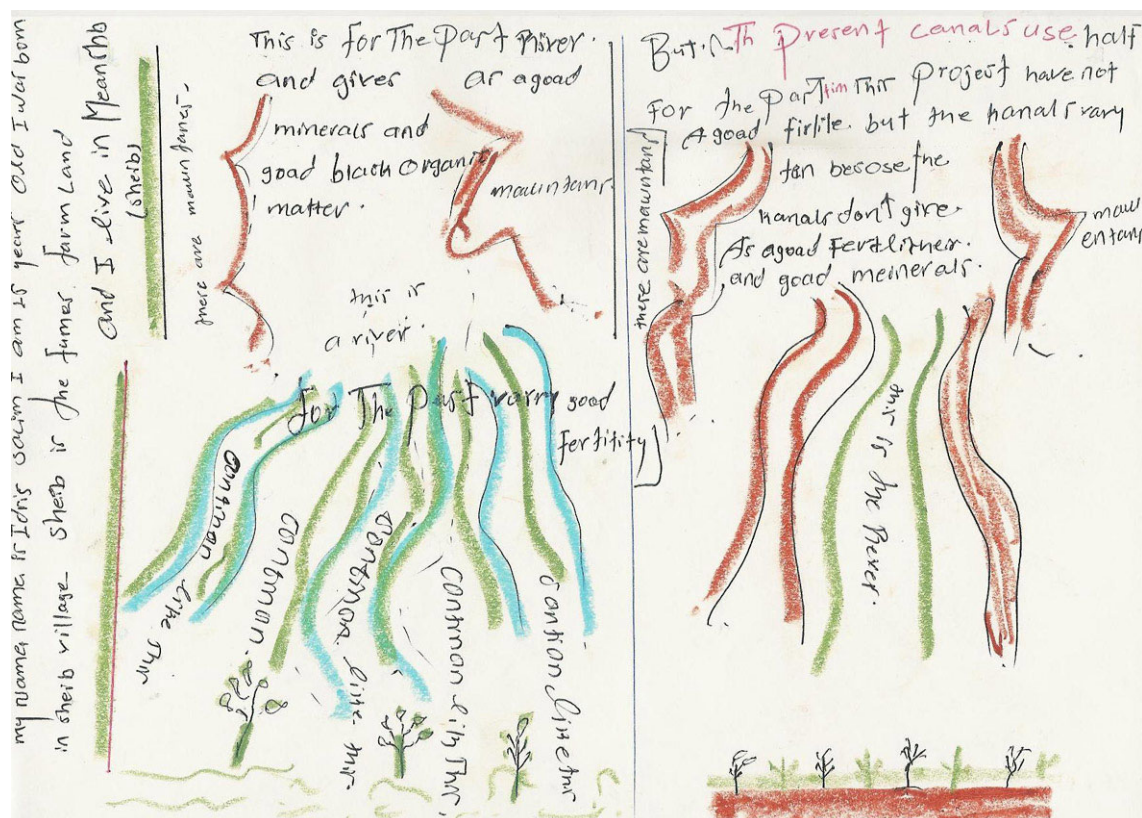 my name name is Idris Salim I am 25 years old I war born
in sheib village sheib is the fumer farm Land
and I live in Meanshb
(sheib)
there are mawntanes
This is for The Part River.
and gives as a good
minerals and
goad black organic
matter.
mawntans
this is
a river.
for The Part varry good
fertitity
contman like thir
contman
contman like thir
contmon lik thir
contion like thir
But. Th present canals use half
For the Part tim This Project have not
A goad firlile but the kanals vary
tan becose the
kanals don't give
As agoad Fertlither.
and goad meinerals.
there are mawntans
maw
entans
this is the Rever.